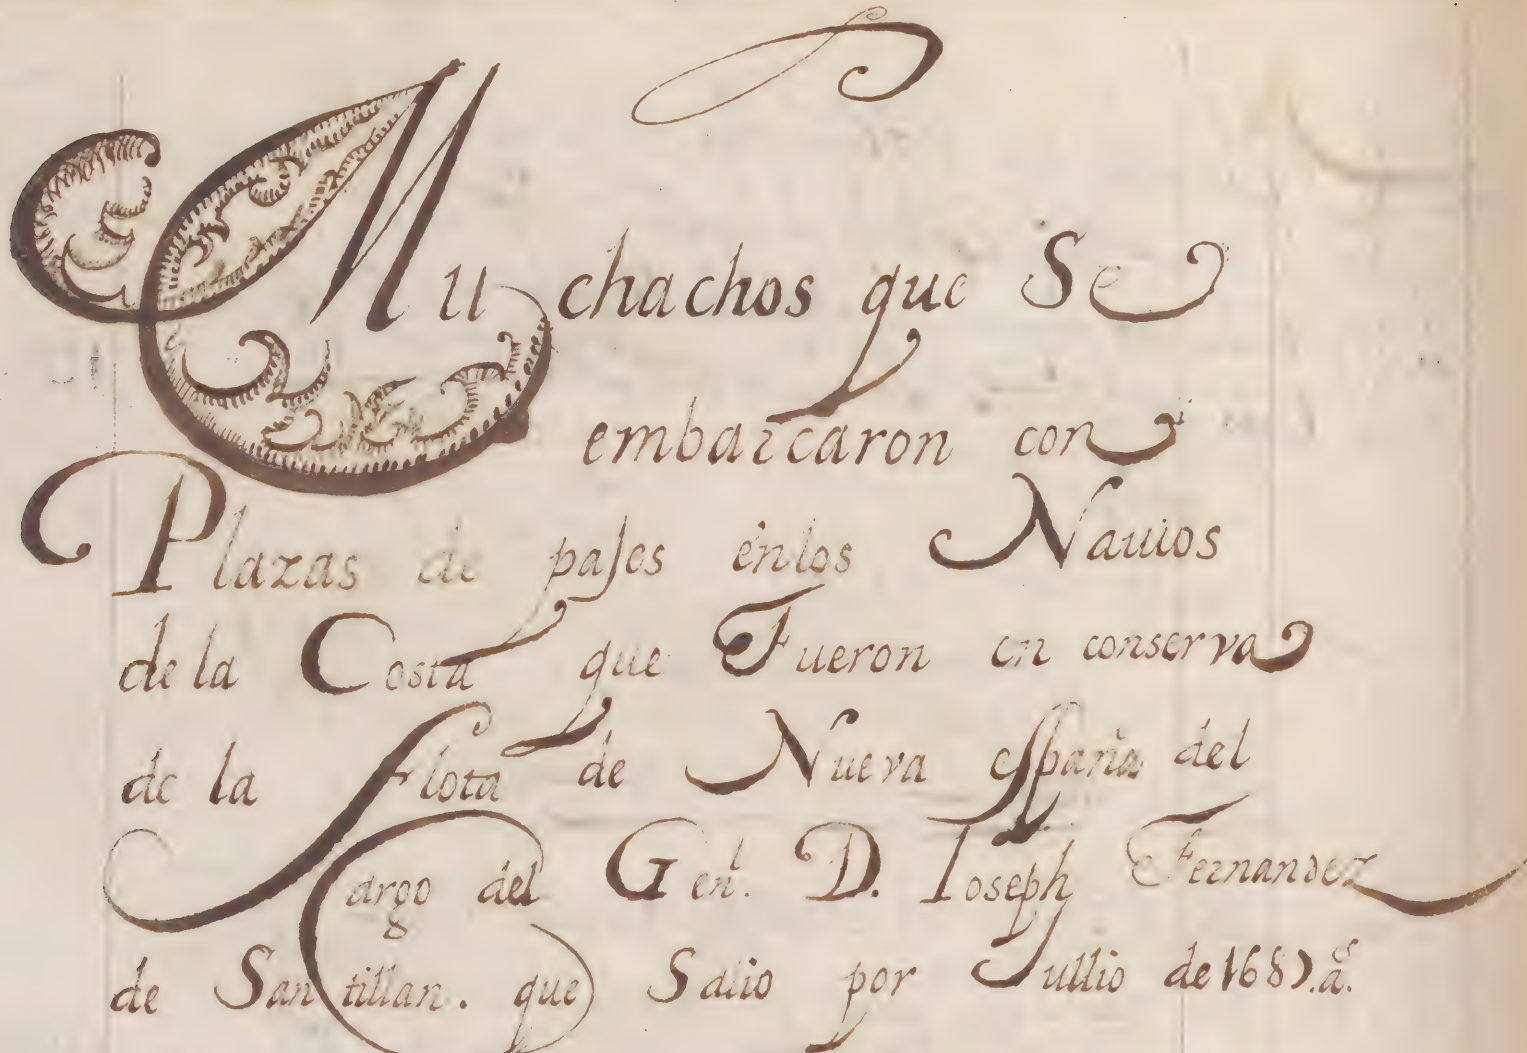 Muchachos que Se
embarcaron con
Plazas de pajes en los Nauios
de la Costa que Fueron en conserva
de la flota de Nueva españa del
Cargo del Gen.l D. Ioseph Fernandez
de Santillan. que Salio por Jullio de 1687.as